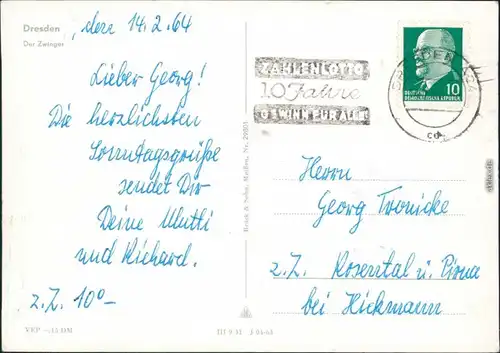 Dresden
Der Zwinger
, den 14.2.64
Lieber Georg!
Die herzlichsten
Sonntagsgrüße
sendet Dir
Deine Mutti
und Richard.
z. Z. 10⁰–
VEP –.15 DM
Brück & Sohn, Meißen, Nr. 29801
III 9 31 J 01-63
ZAHLENLOTTO
10 Jahre
GEWINN FÜR ALLE
DRESDEN A
cd
DEUTSCHE
DEMOKRATISCHE REPUBLIK
10
Herrn
Georg Tronicke
z. Z. Rosental ü. Pirna
bei Hickmann